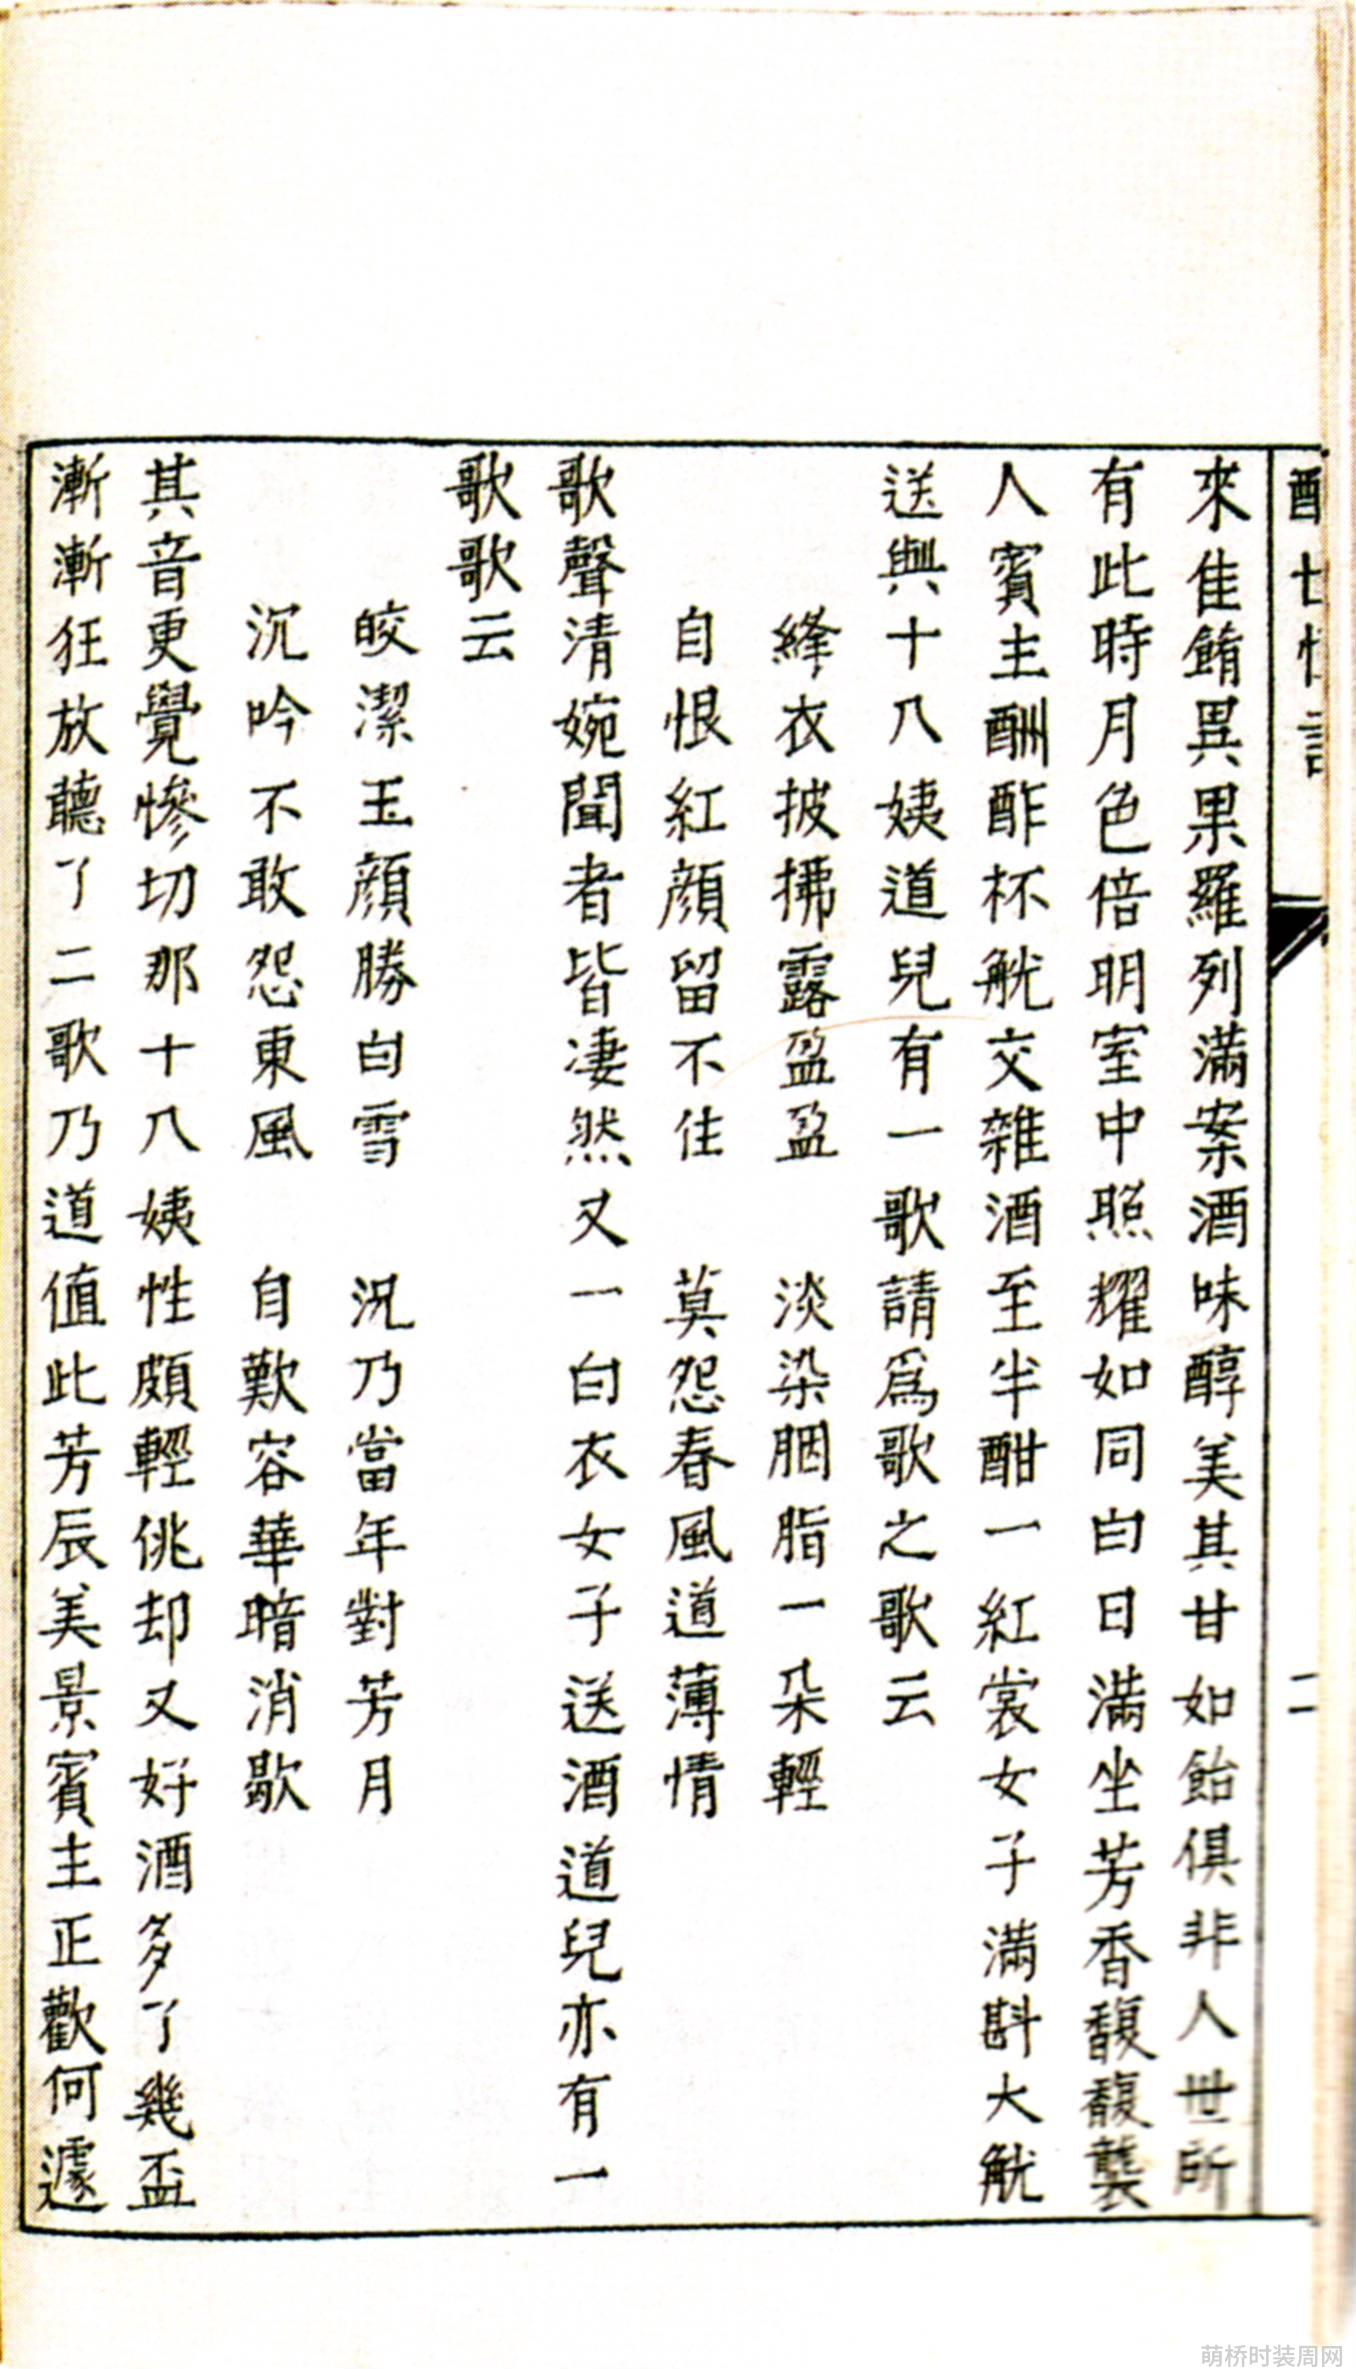 來佳餚異果羅列滿案酒味醇美其甘如飴俱非人世所
有此時月色倍明室中照耀如同白日滿坐芳香馥馥襲
人賓主酬酢杯觥交雜酒至半酣一紅裳女子滿斟大觥
送與十八姨道兒有一歌請爲歌之歌云
絳衣披拂露盈盈　淡染胭脂一朵輕
自恨紅顔留不住　莫怨春風道薄情
歌聲清婉聞者皆凄然又一白衣女子送酒道兒亦有一
歌歌云
皎潔玉顔勝白雪　況乃當年對芳月
沉吟不敢怨東風　自歎容華暗消歇
其音更覺慘切那十八姨性頗輕佻却又好酒多了幾盃
漸漸狂放聽了二歌乃道值此芳辰美景賓主正歡何遽
二
萌桥时装周网